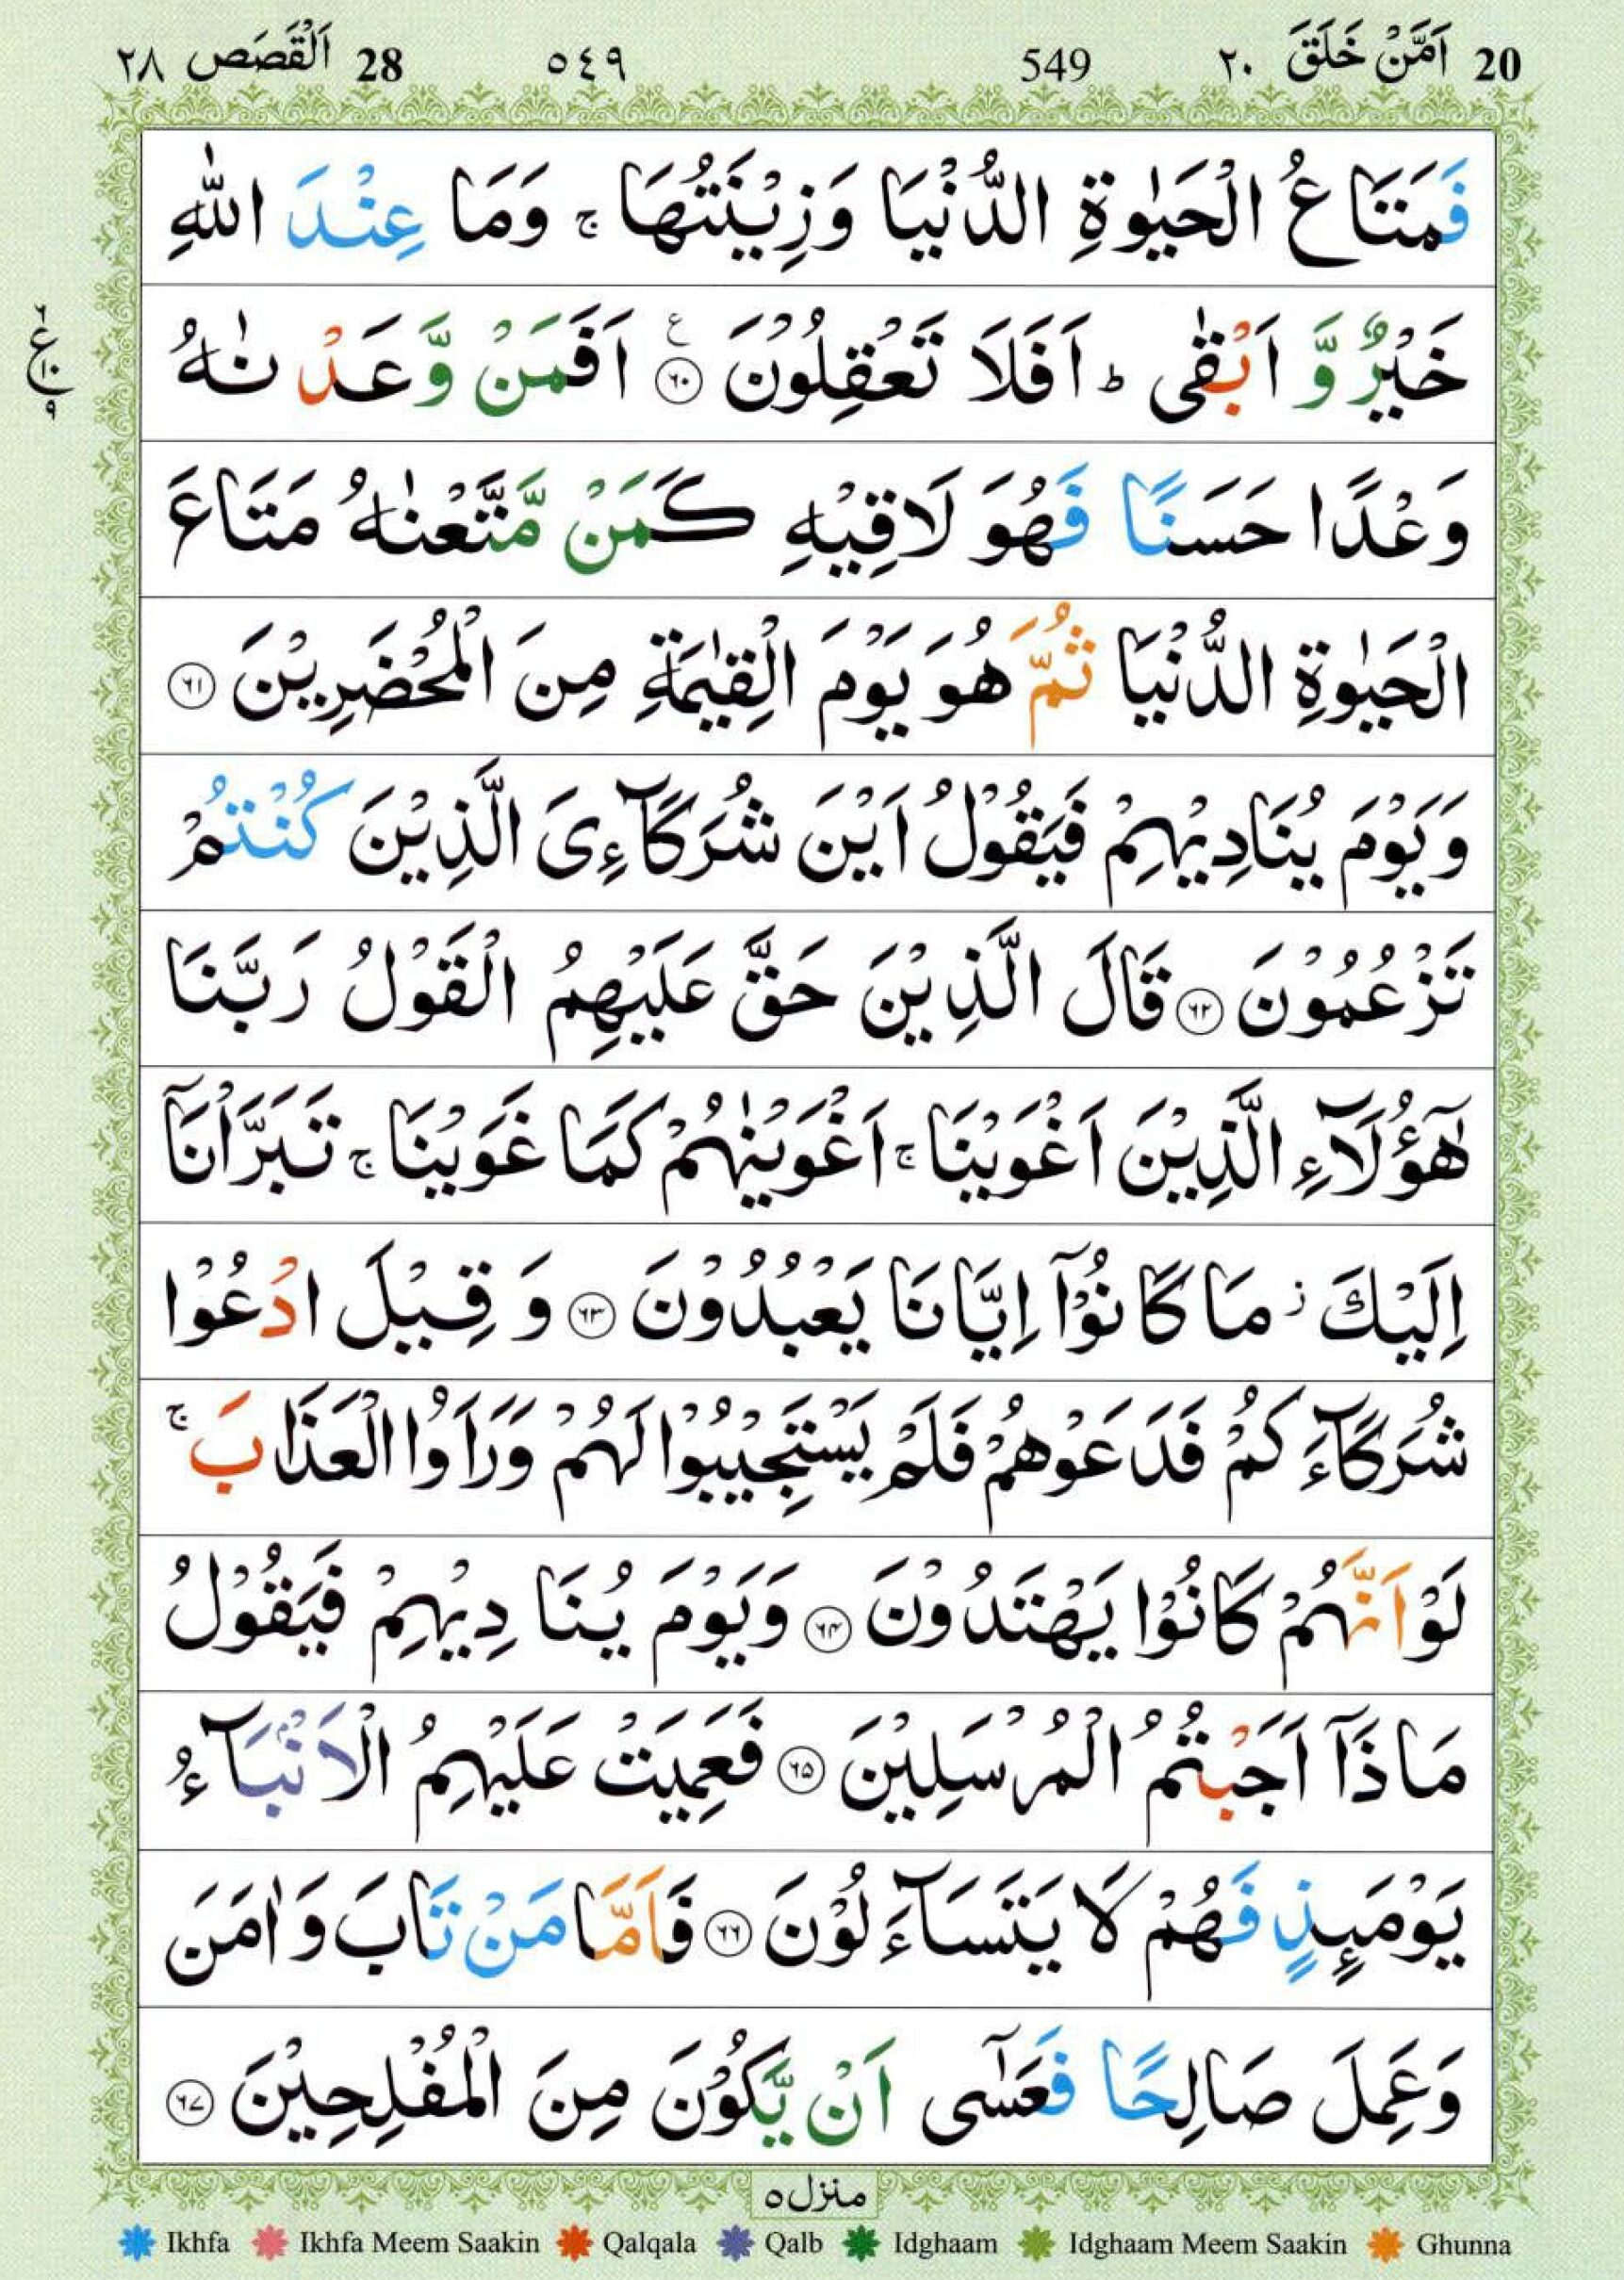 20 اَمَّنْ خَلَقَ ٢٠ 549 ٥٤٩ 28 اَلْقَصَص ٢٨
فَمَتَاعُ الْحَيٰوةِ الدُّنْيَا وَزِيْنَتُهَا ۚ وَمَا عِنْدَ اللّٰهِ
خَيْرٌ وَّ اَبْقٰى ؕ اَفَلَا تَعْقِلُوْنَ ۶۰ ع اَفَمَنْ وَّعَدْنٰهُ
ع ٦ ١٠ ٩
وَعْدًا حَسَنًا فَهُوَ لَاقِيْهِ كَمَنْ مَّتَّعْنٰهُ مَتَاعَ
الْحَيٰوةِ الدُّنْيَا ثُمَّ هُوَ يَوْمَ الْقِيٰمَةِ مِنَ الْمُحْضَرِيْنَ ۶۱
وَيَوْمَ يُنَادِيْهِمْ فَيَقُوْلُ اَيْنَ شُرَكَآءِىَ الَّذِيْنَ كُنْتُمْ
تَزْعُمُوْنَ ۶۲ قَالَ الَّذِيْنَ حَقَّ عَلَيْهِمُ الْقَوْلُ رَبَّنَا
هٰٓؤُلَآءِ الَّذِيْنَ اَغْوَيْنَا ۚ اَغْوَيْنٰهُمْ كَمَا غَوَيْنَا ۚ تَبَرَّاْنَآ
اِلَيْكَ ؗ مَا كَانُوْٓا اِيَّانَا يَعْبُدُوْنَ ۶۳ وَ قِيْلَ ادْعُوْا
شُرَكَآءَكُمْ فَدَعَوْهُمْ فَلَمْ يَسْتَجِيْبُوْا لَهُمْ وَرَاَوُا الْعَذَابَ ۚ
لَوْ اَنَّهُمْ كَانُوْا يَهْتَدُوْنَ ۶۴ وَيَوْمَ يُنَادِيْهِمْ فَيَقُوْلُ
مَاذَآ اَجَبْتُمُ الْمُرْسَلِيْنَ ۶۵ فَعَمِيَتْ عَلَيْهِمُ الْاَنْۢبَآءُ
يَوْمَئِذٍ فَهُمْ لَا يَتَسَآءَلُوْنَ ۶۶ فَاَمَّا مَنْ تَابَ وَاٰمَنَ
وَعَمِلَ صَالِحًا فَعَسٰٓى اَنْ يَّكُوْنَ مِنَ الْمُفْلِحِيْنَ ۶۷
منزل ۵
Ikhfa Ikhfa Meem Saakin Qalqala Qalb Idghaam Idghaam Meem Saakin Ghunna